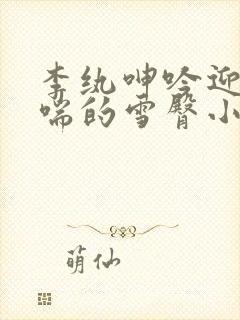 李纨呻吟迎
喘的雪臀小
萌仙